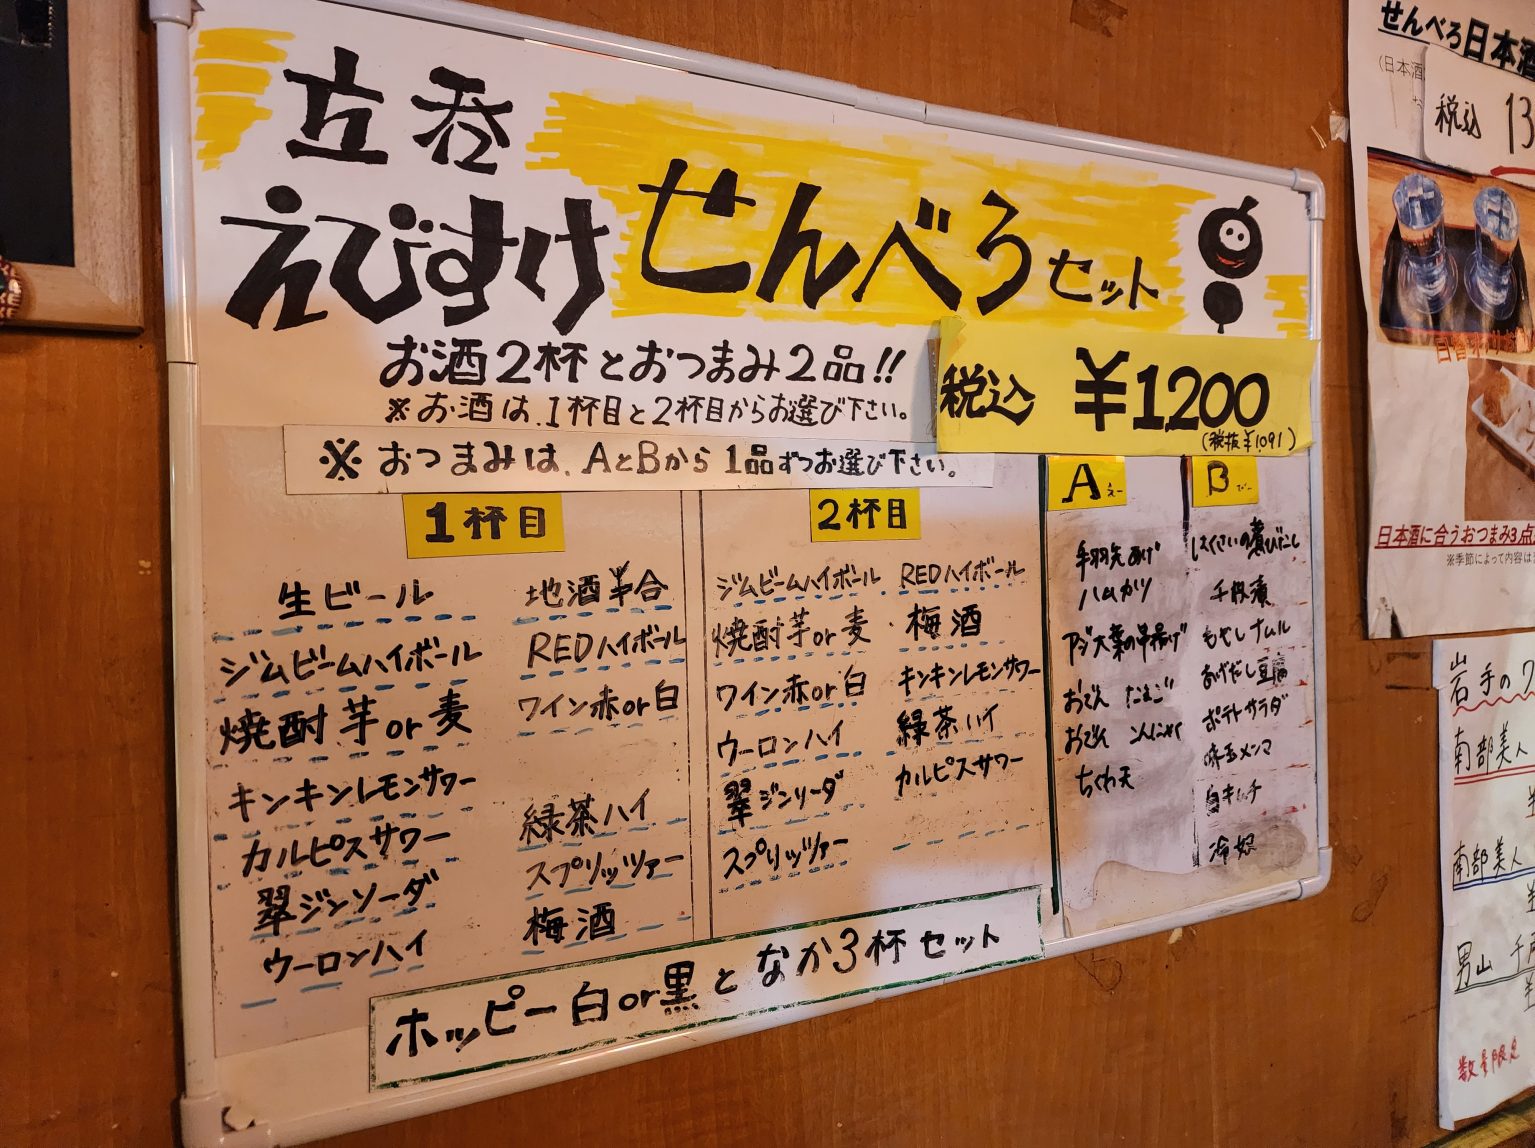 立呑
えびすけ せんべろセット
お酒2杯とおつまみ2品!!
※お酒は、1杯目と2杯目からお選び下さい。
税込 ¥1,200
(税抜¥1,091)
※おつまみは、AとBから1品ずつお選び下さい。
1杯目
生ビール
ジムビームハイボール
焼酎芋or麦
キンキンレモンサワー
カルピスサワー
翠ジンソーダ
ウーロンハイ
地酒半合
REDハイボール
ワイン赤or白
緑茶ハイ
スプリッツァー
梅酒
2杯目
ジムビームハイボール
焼酎芋or麦
ワイン赤or白
ウーロンハイ
翠ジンソーダ
スプリッツァー
REDハイボール
梅酒
キンキンレモンサワー
緑茶ハイ
カルピスサワー
A エー
手羽先あげ
ハムカツ
アジ大葉の串揚げ
おでん たまご
おでん こんにゃく
ちくわ天
B ビー
はくさいの煮びたし
千枚漬
もやしナムル
あげだし豆腐
ポテトサラダ
味玉メンマ
白キムチ
冷奴
ホッピー白or黒となか3杯セット
せんべろ日本酒
(日本酒
税込 13
日本酒に合うおつまみ3点
※季節によって内容は
岩手の
南部美人
南部美人
男山
数量限定